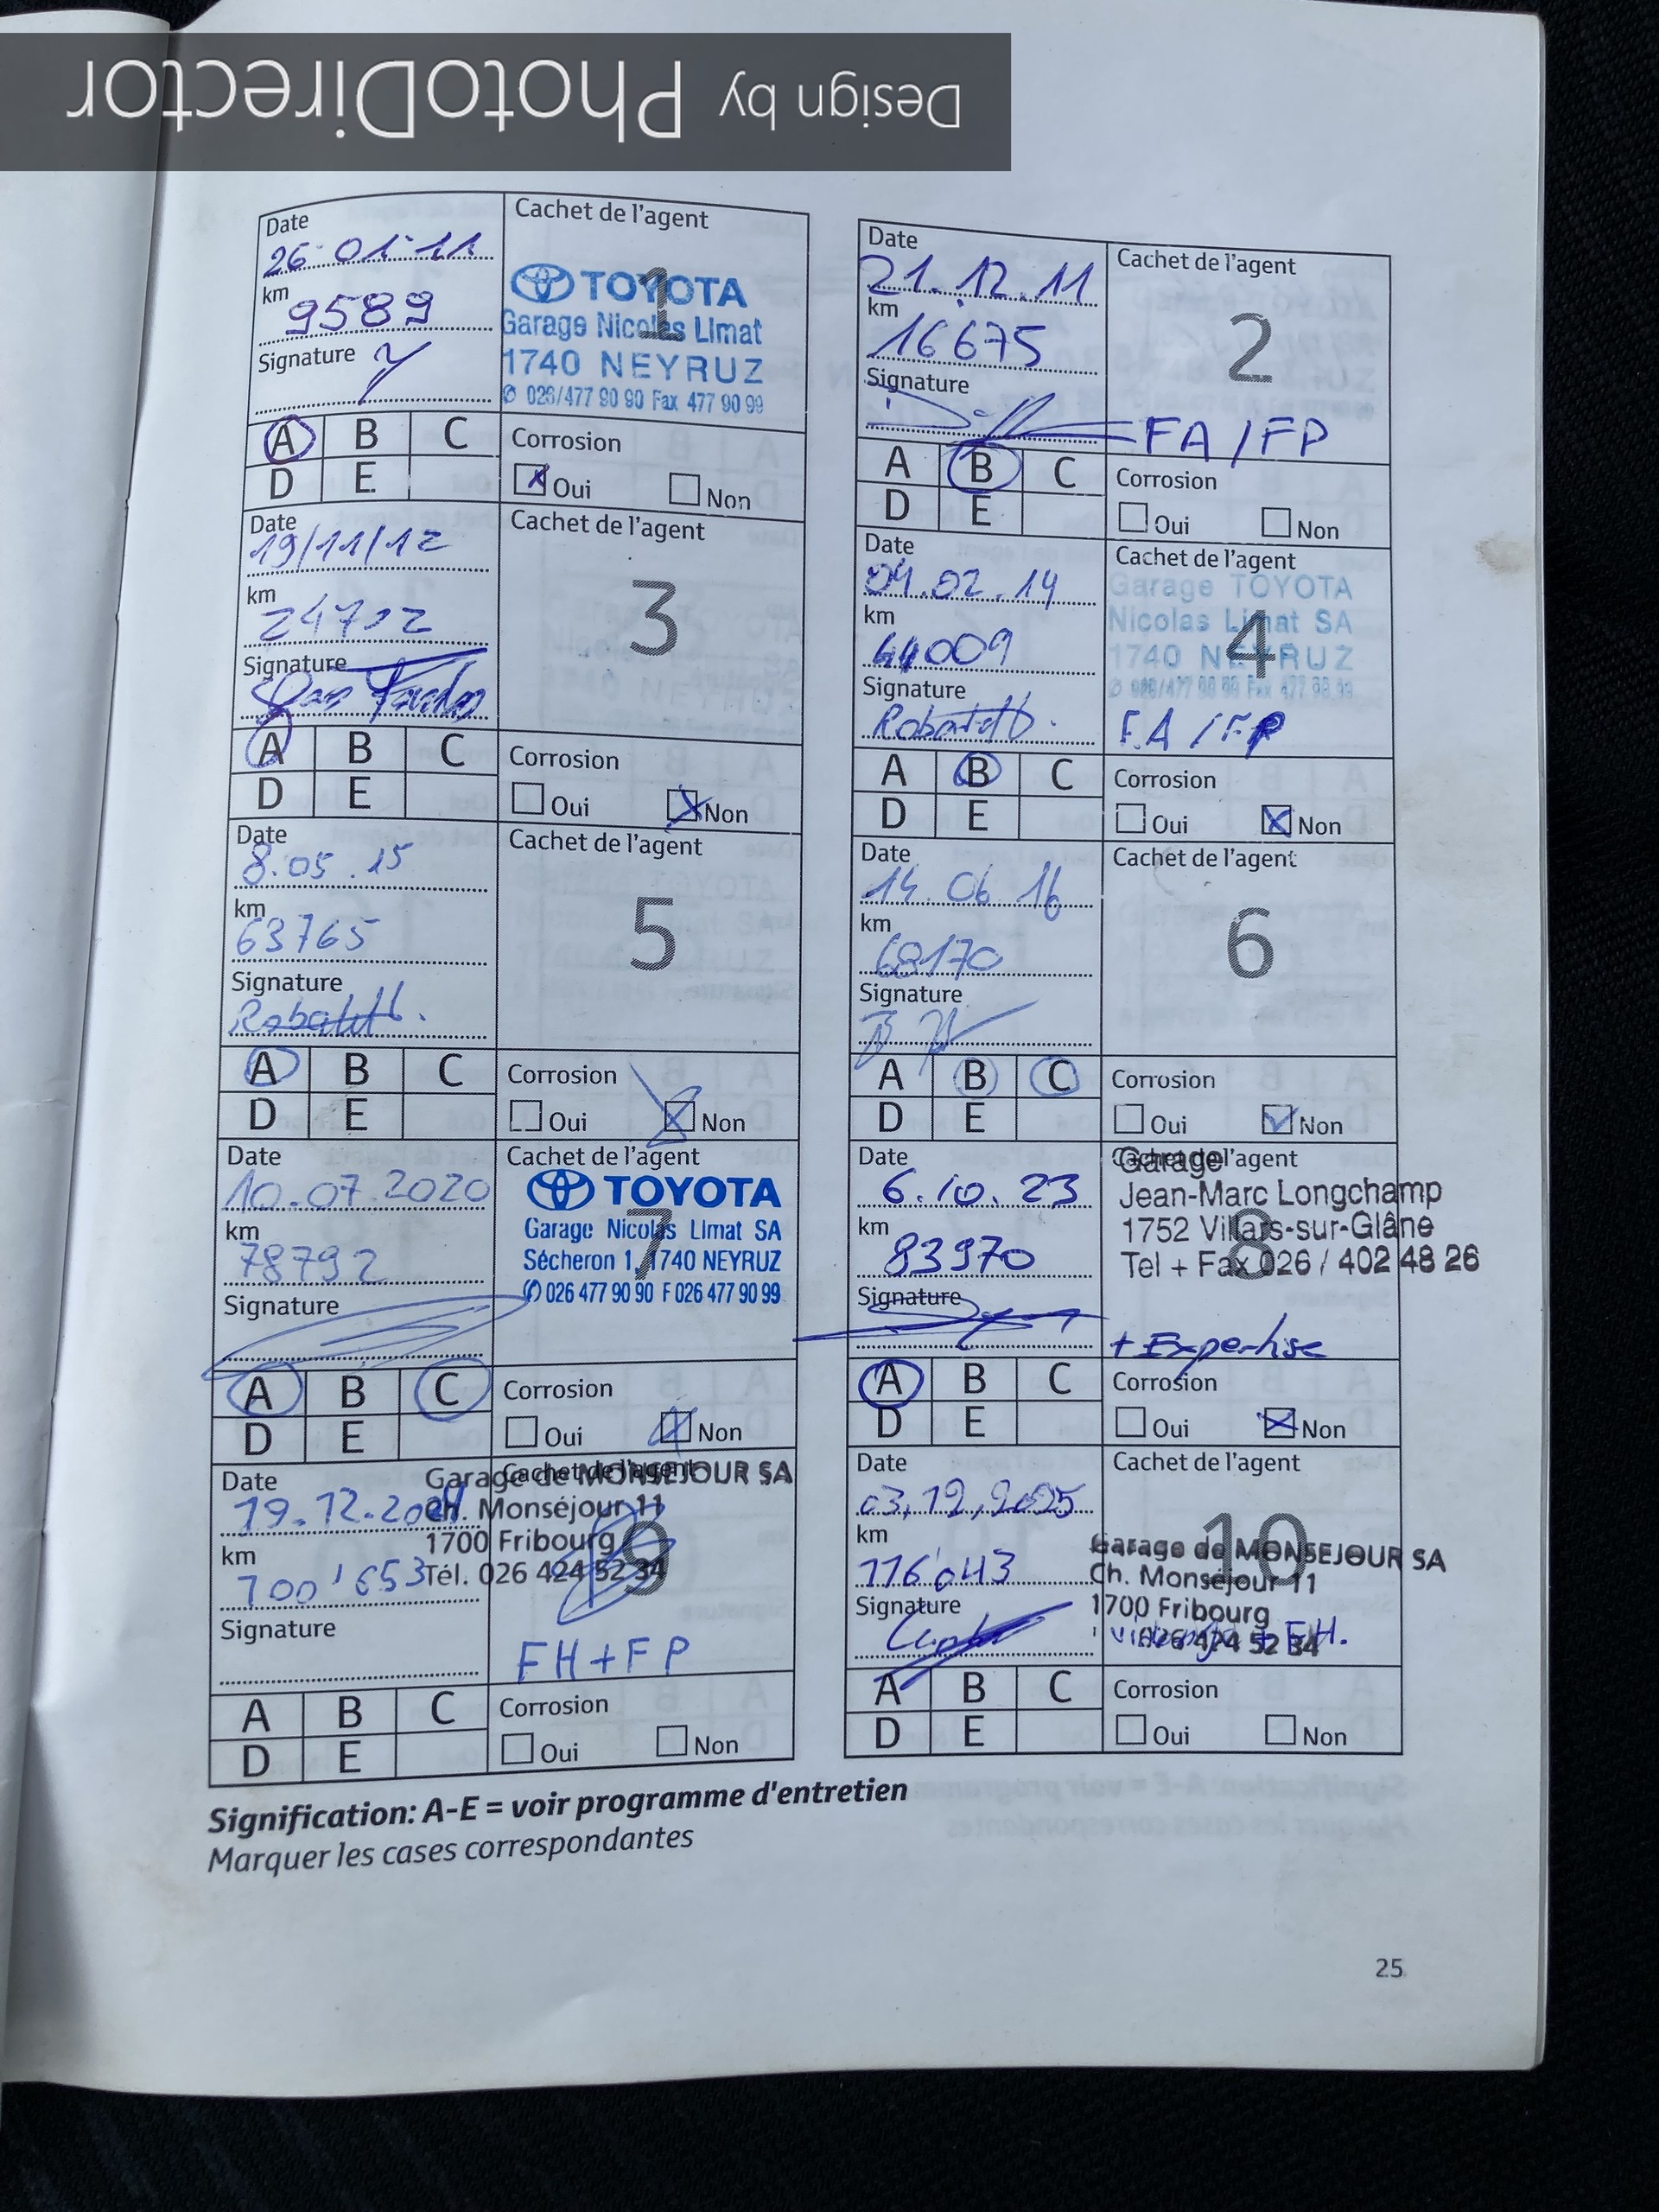 Design by PhotoDirector
Date
26.01.11
km
9589
Signature
Cachet de l'agent
1
TOYOTA
Garage Nicolas Limat
1740 NEYRUZ
✆ 026/477 90 90 Fax 477 90 99
A B C
D E
Corrosion
Oui Non
Date
21.12.11
km
16675
Signature
Cachet de l'agent
2
FA/FP
A B C
D E
Corrosion
Oui Non
Date
19/11/12
km
Signature
Cachet de l'agent
3
A B C
D E
Corrosion
Oui Non
Date
04.02.14
km
44009
Signature
Cachet de l'agent
4
Garage TOYOTA
Nicolas Limat SA
1740 NEYRUZ
✆ 026/477 90 90 Fax 477 90 99
FA/FP
A B C
D E
Corrosion
Oui Non
Date
8.05.15
km
63765
Signature
Cachet de l'agent
5
A B C
D E
Corrosion
Oui Non
Date
14.06.16
km
68170
Signature
Cachet de l'agent
6
A B C
D E
Corrosion
Oui Non
Date
10.07.2020
km
78792
Signature
Cachet de l'agent
7
TOYOTA
Garage Nicolas Limat SA
Sécheron 1, 1740 NEYRUZ
✆ 026 477 90 90 F 026 477 90 99
A B C
D E
Corrosion
Oui Non
Date
6.10.23
km
83970
Signature
Cachet de l'agent
8
Garage
Jean-Marc Longchamp
1752 Villars-sur-Glâne
Tel + Fax 026 / 402 48 26
+ Expertise
A B C
D E
Corrosion
Oui Non
Date
19.12.2024
km
100'653
Signature
Cachet de l'agent
9
Garage de MONSEJOUR SA
Ch. Monséjour 11
1700 Fribourg
Tél. 026 424 52 34
FH+FP
A B C
D E
Corrosion
Oui Non
Date
03.12.2025
km
116'043
Signature
Cachet de l'agent
10
Garage de MONSEJOUR SA
Ch. Monséjour 11
1700 Fribourg
026 424 52 34
+ FH.
A B C
D E
Corrosion
Oui Non
Signification: A-E = voir programme d'entretien
Marquer les cases correspondantes
25